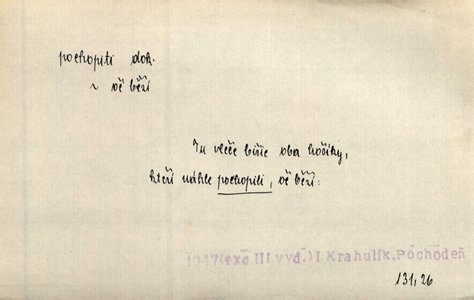 pochopiti dok.
~ oč běží
Tu vleče biřic oba hošíky,
kteří náhle pochopili, oč běží:
1947 (exc III. vyd.) I Krahulík, Pochodeň
131, 26